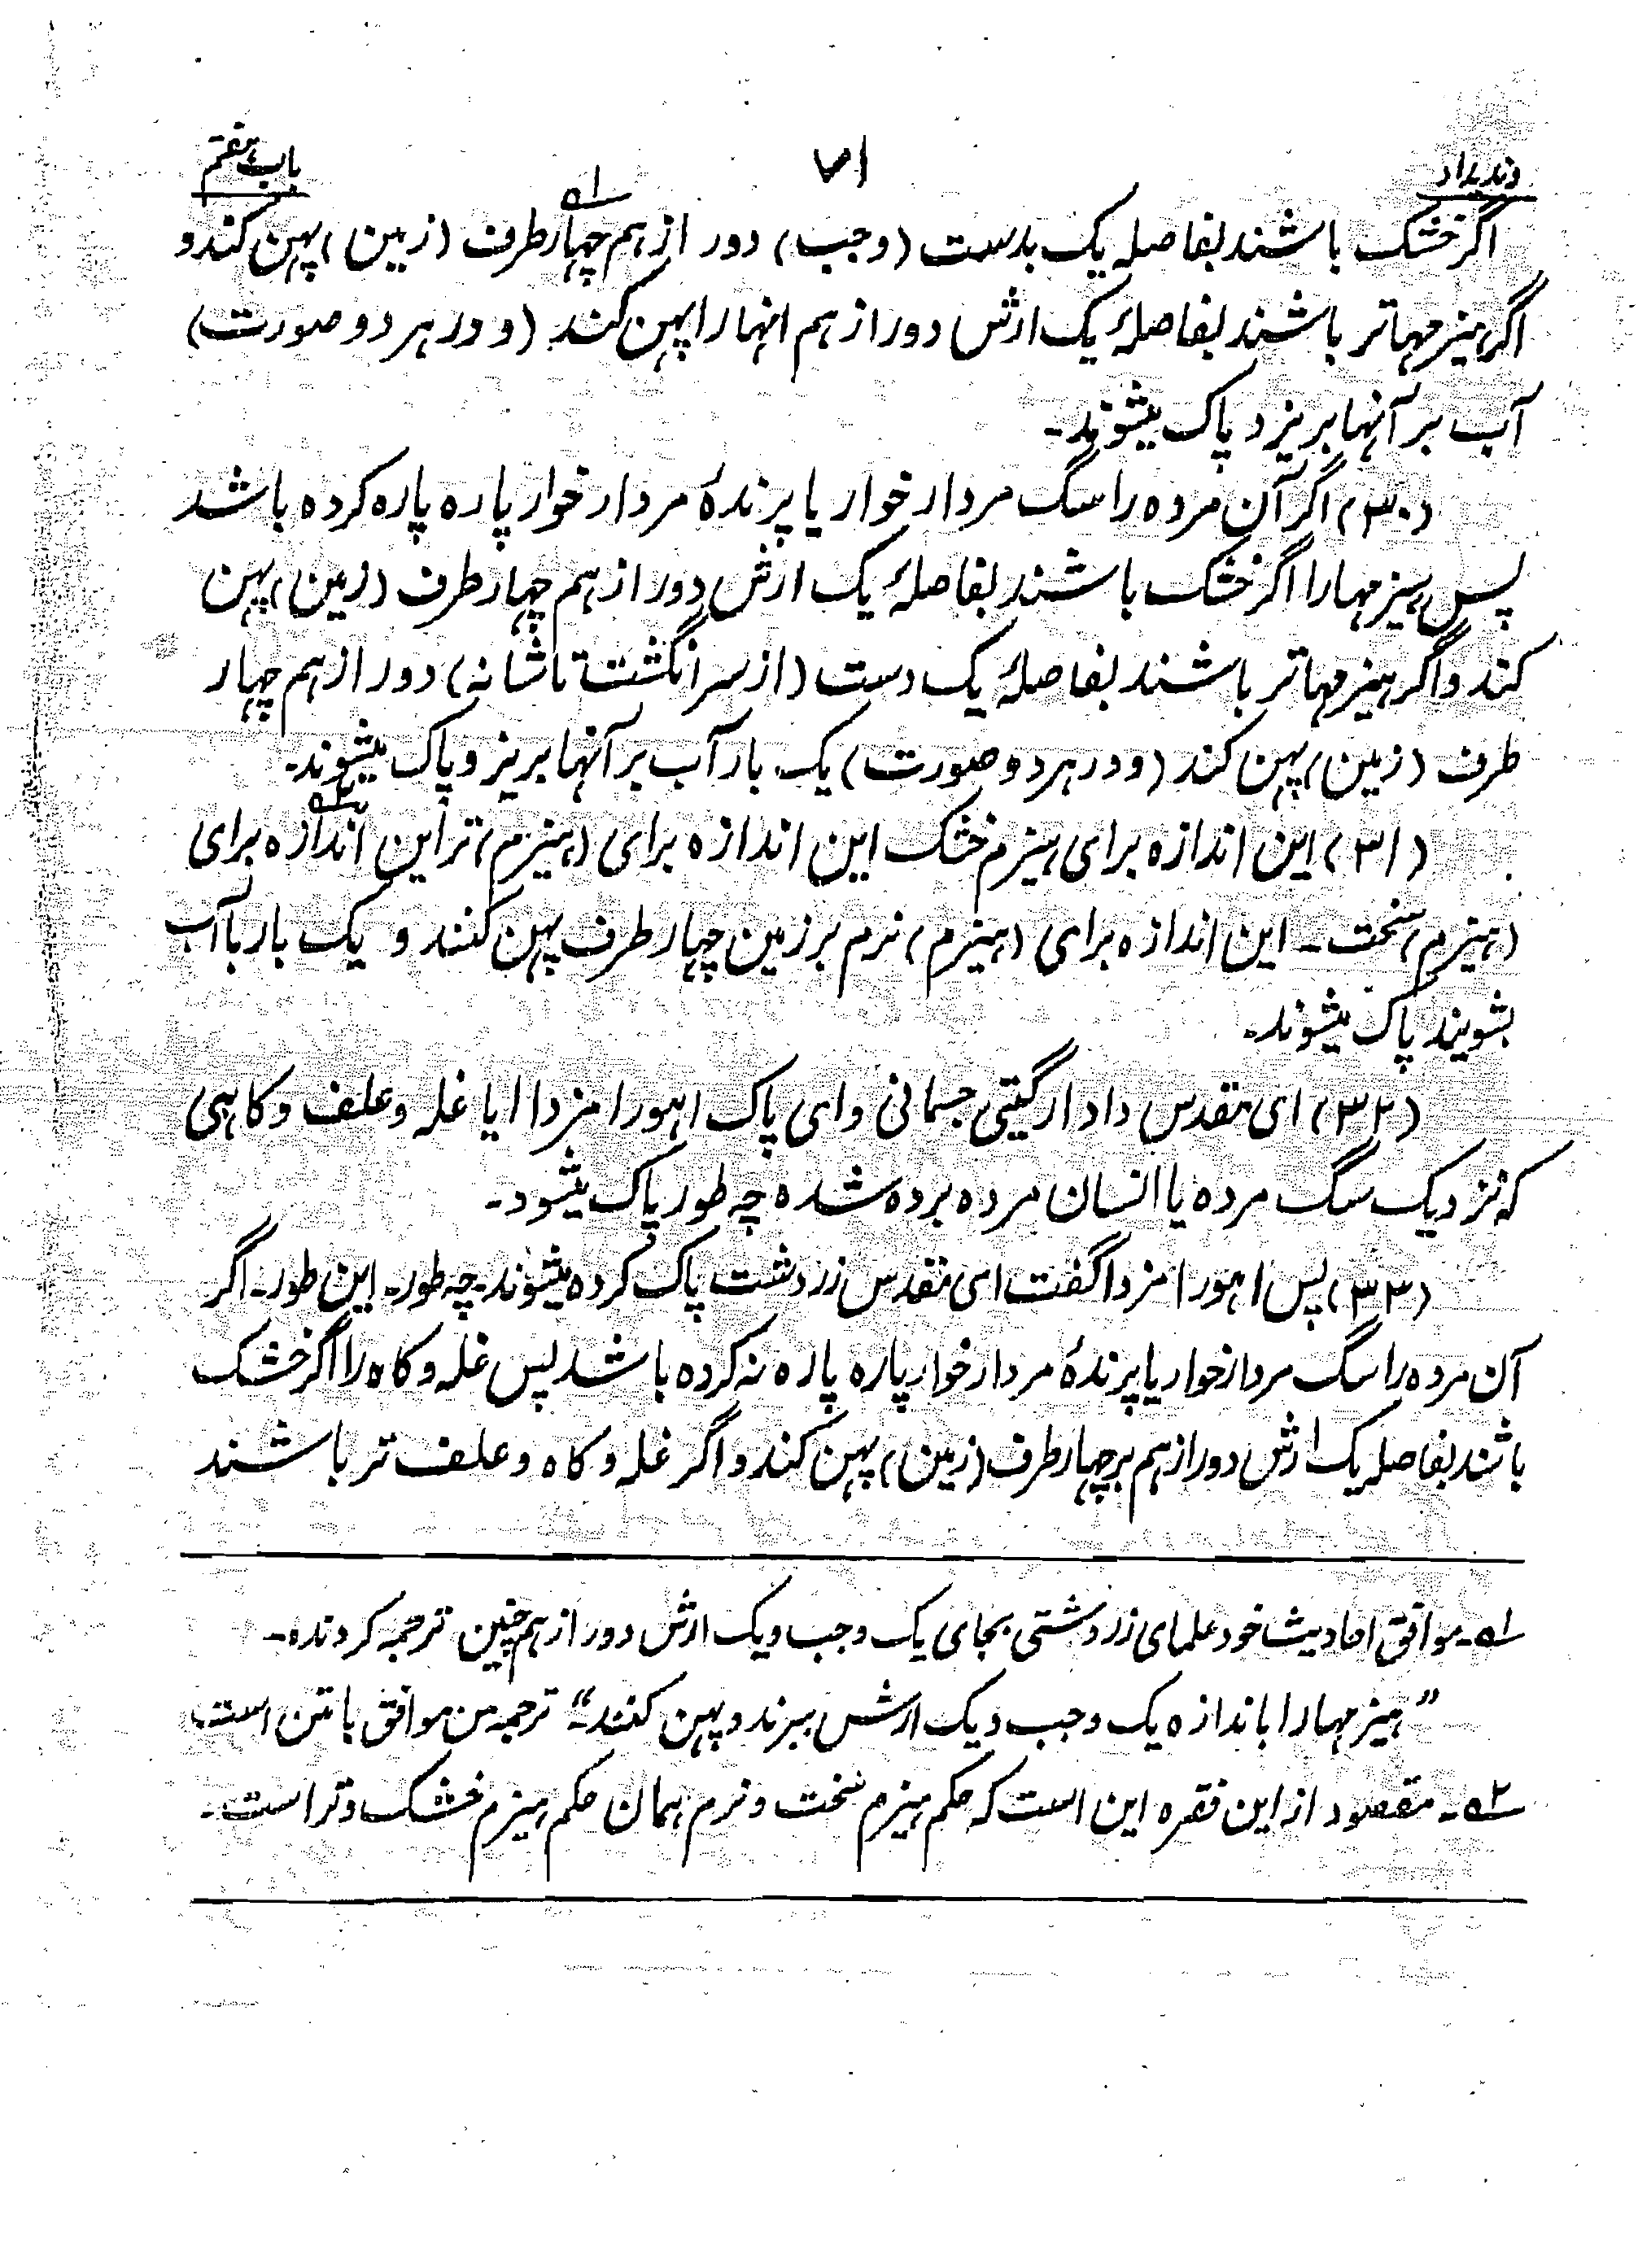 وندیداد
۷۱
باب هفتم
اگر خشک باشند بفاصله یک بدست (وجب) دور از هم چهار طرف (زمین) پهن کند و
اگر هیزمها تر باشند بفاصلهٔ یک ارش دور از هم انها را پهن کند (و در هر دو صورت)
آب بر آنها بریزد پاک میشوند۔
(۳۰) اگر آن مرده را سگ مردار خوار یا پرندهٔ مردار خوار پاره پاره کرده باشد
پس هیزمها را اگر خشک باشند بفاصلهٔ یک ارش دور از هم چهار طرف (زمین) پهن
کند و اگر هیزمها تر باشند بفاصلهٔ یک دست (از سر انگشت تا شانه) دور از هم چهار
طرف (زمین) پهن کند (و در هر دو صورت) یک بار آب بر آنها بریز و پاک میشوند۔
(۳۱) این اندازه برای هیزم خشک این اندازه برای (هیزم) تر این اندازه برای
(هیزم) سخت ۔ این اندازه برای (هیزم) نرم بر زمین چهار طرف پهن کنند و یک بار با آب
بشویند پاک میشوند۔
(۳۲) ای مقدس دادار گیتی جسمانی و ای پاک اهورا مزدا ایا غله و علف و کاهی
که نزدیک سگ مرده یا انسان مرده برده شده چه طور پاک میشود۔
(۳۳) پس اهورا مزدا گفت ای مقدس زردشت پاک کرده میشوند۔ چه طور۔ این طور۔ اگر
آن مرده را سگ مردار خوار یا پرندهٔ مردار خوار پاره پاره نه کرده باشد پس غله و کاه را اگر خشک
باشند بفاصله یک ارش دور از هم بر چهار طرف (زمین) پهن کند و اگر غله و کاه و علف تر باشند
۱ـه۔ موافق احادیث خود علمای زردشتی بجای یک وجب و یک ارش دور از هم چنین ترجمه کردنده۔
”هیزمها را باندازه یک وجب و یک ارش ببرند و پهن کنند“۔ ترجمه من موافق با متن است۔
۲ـه۔ مقصود از این فقره این است که حکم هیزم سخت و نرم همان حکم هیزم خشک و تر است۔